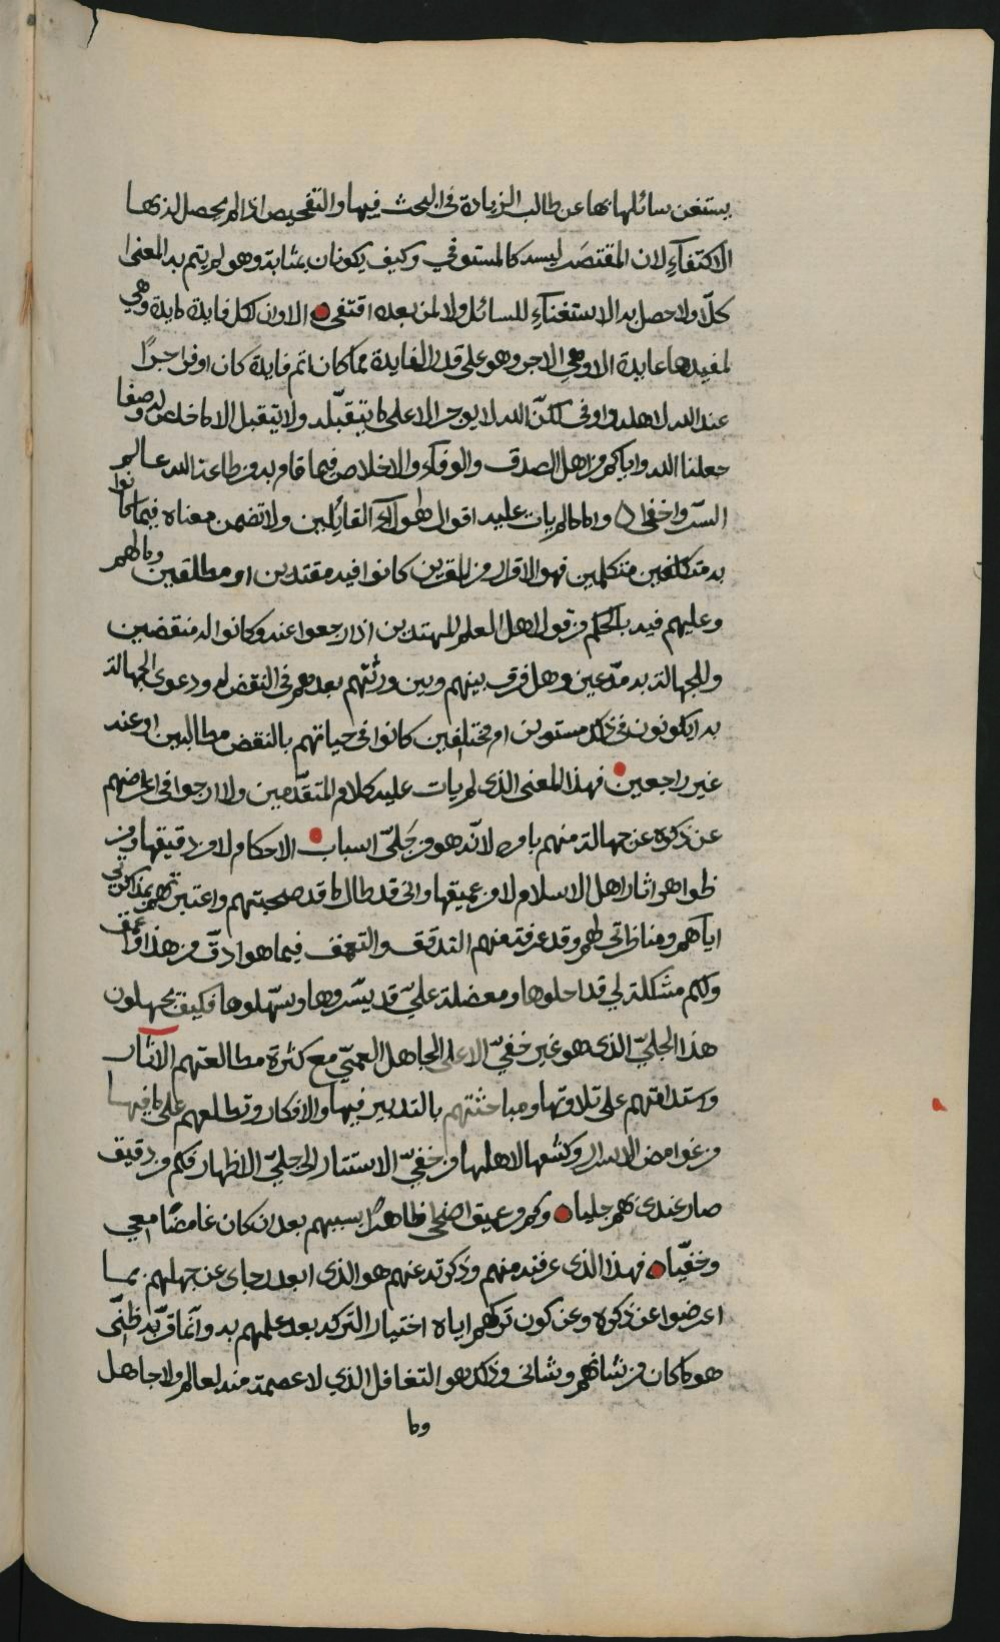 يستغن سائلها بها عن طالب الزيادة فى البحث فيها والتفحيص اذا لم يحصل له بها
الاكتفآء لان المقتصَر ليس كالمستوفي وكيف يكونان بمثابة وهو لم يتم به المعنى
كلّا ولا حصل به الاستغنآء للسائل ولا لمن بعده اقتفى الا وان لكل فايدة مايدة وهي
لمفيدها عايدة الا وهي الاجر وهو على قدر الفايدة مما كان اتم فايدة كان اوفر اجرًا
عند الله لاهله واوفى لكنّ الله لا يوجر الا على ما يتقبّله ولا يتقبل الا ما خلص له وصفا
جعلنا الله واياكم من اهل الصدق والوفآء والاخلاص فيما قام به من طاعة الله عالم
السرّ واخفى وما ما لم يات عليه اقوال هؤلآء القائلين ولا تضمن معناه فيما كانوا
به متكلفين متكلمين فهو الاقرار من المقرين كانوا فيه مقتدين او مطلقين وما لهم
وعليهم فيه بالحكم من قول اهل العلم المهتدين اذا رجعوا عنه وكانوا له منقضين
وللجهالة به مدّعين وهل فرق بينهم وبين ورثتهم بعدهم فى النقض له ودعوى الجهالة
به ايكونون فى ذلك مستوين ام مختلفين كانوا فى حياتهم بالنقض مطالبين او عنه
غير راجعين فهذا المعنى الذى لم يات عليه كلام المتقدّمين ولا ارجوا فى اعراضهم
عن ذكره عن جهالة منهم بامره لانّه هو من جَليّ اسباب الاحكام لا من دقيقها ومن
ظواهر اثار اهل الاسلام لا من عميقها وانى قد طال ما قد صحبتهم واعتبرتهم بمذاكرتي
اياهم ومناظراتى لهم وقد عرفت عنهم التدقق والتعمق فيما هو ادقّ من هذا واعمق
ولكم مشكلة لي قد احلوها ومعضلة عليّ قد يسّروها وسهّلوها فكيف يجهلون
هذا الجليّ الذى هو غير خفيّ الا على الجاهل العميّ مع كثرة مطالعتهم الاثار
واستدامتهم على تلاوتها ومباحثتهم بالتدبير فيها والافكار وتطلعهم على ما فيها
من غوامض الاسرار وكشفها لاهلها من خفيّ الاستتار الى جليّ الاظهار فكم من دقيق
صار عندى بهم جليا وكم من عميق اضحى ظاهرًا بسببهم بعد ان كان غامضًا معي
وخفيّا فهذا الذى عرفته منهم وذكرته عنهم هو الذى ابعد رجاى عن جهلهم بما
اعرضوا عن ذكره وعن كون تركهم اياه اختيار الترك بعد علمهم به وانّما قرّبه ظنّى
هو ما كان من شانهم وشانى وذلك هو التغافل الذي لا عصمة منه لعالم ولا جاهل
وما